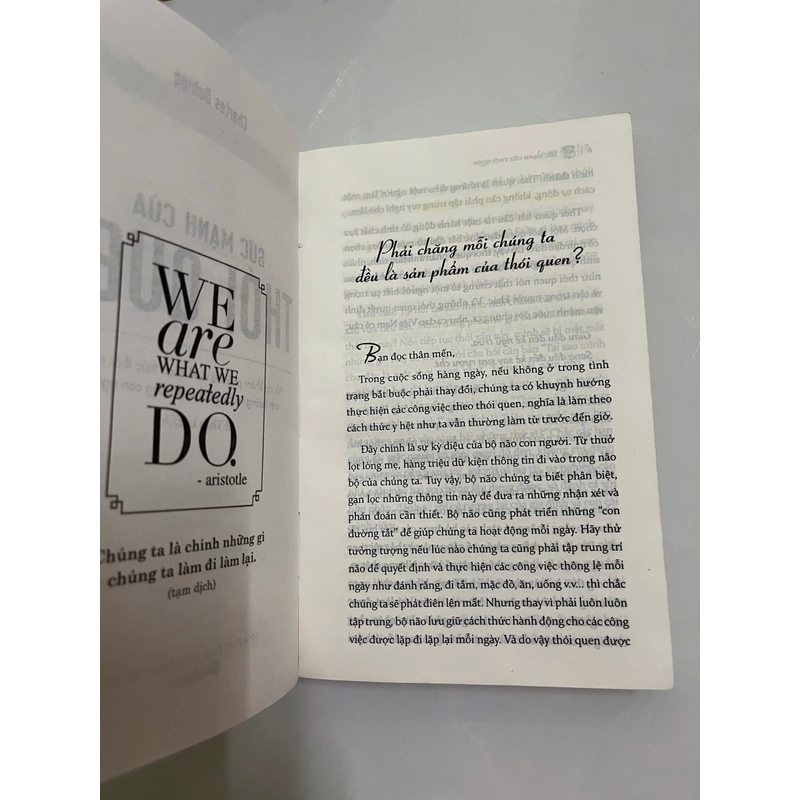 WE
are
WHAT WE
repeatedly
DO.
- aristotle
Chúng ta là chính những gì
chúng ta làm đi làm lại.
(tạm dịch)
Phải chăng mỗi chúng ta
đều là sản phẩm của thói quen?
Bạn đọc thân mến,
Trong cuộc sống hàng ngày, nếu không ở trong tình
trạng bắt buộc phải thay đổi, chúng ta có khuynh hướng
thực hiện các công việc theo thói quen, nghĩa là làm theo
cách thức y hệt như ta vẫn thường làm từ trước đến giờ.
Đây chính là sự kỳ diệu của bộ não con người. Từ thuở
lọt lòng mẹ, hàng triệu dữ kiện thông tin đi vào trong não
bộ của chúng ta. Tuy vậy, bộ não chúng ta biết phân biệt,
gạn lọc những thông tin này để đưa ra những nhận xét và
phán đoán cần thiết. Bộ não cũng phát triển những “con
đường tắt” để giúp chúng ta hoạt động mỗi ngày. Hãy thử
tưởng tượng nếu lúc nào chúng ta cũng phải tập trung trí
não để quyết định và thực hiện các công việc thông lệ mỗi
ngày như đánh răng, đi tắm, mặc đồ, ăn, uống v.v... thì chắc
chúng ta sẽ phát điên lên mất. Nhưng thay vì phải luôn luôn
tập trung, bộ não lưu giữ cách thức hành động cho các công
việc được lặp đi lặp lại mỗi ngày. Và do vậy thói quen được